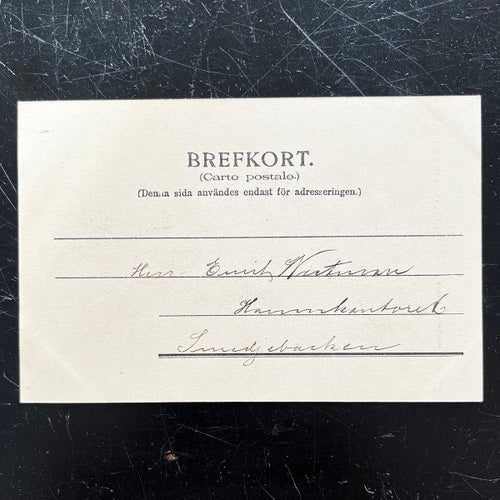 BREFKORT.
(Carte postale.)
(Denna sida användes endast för adresseringen.)
Herr Emil
Hamnkontoret
Smedjebacken